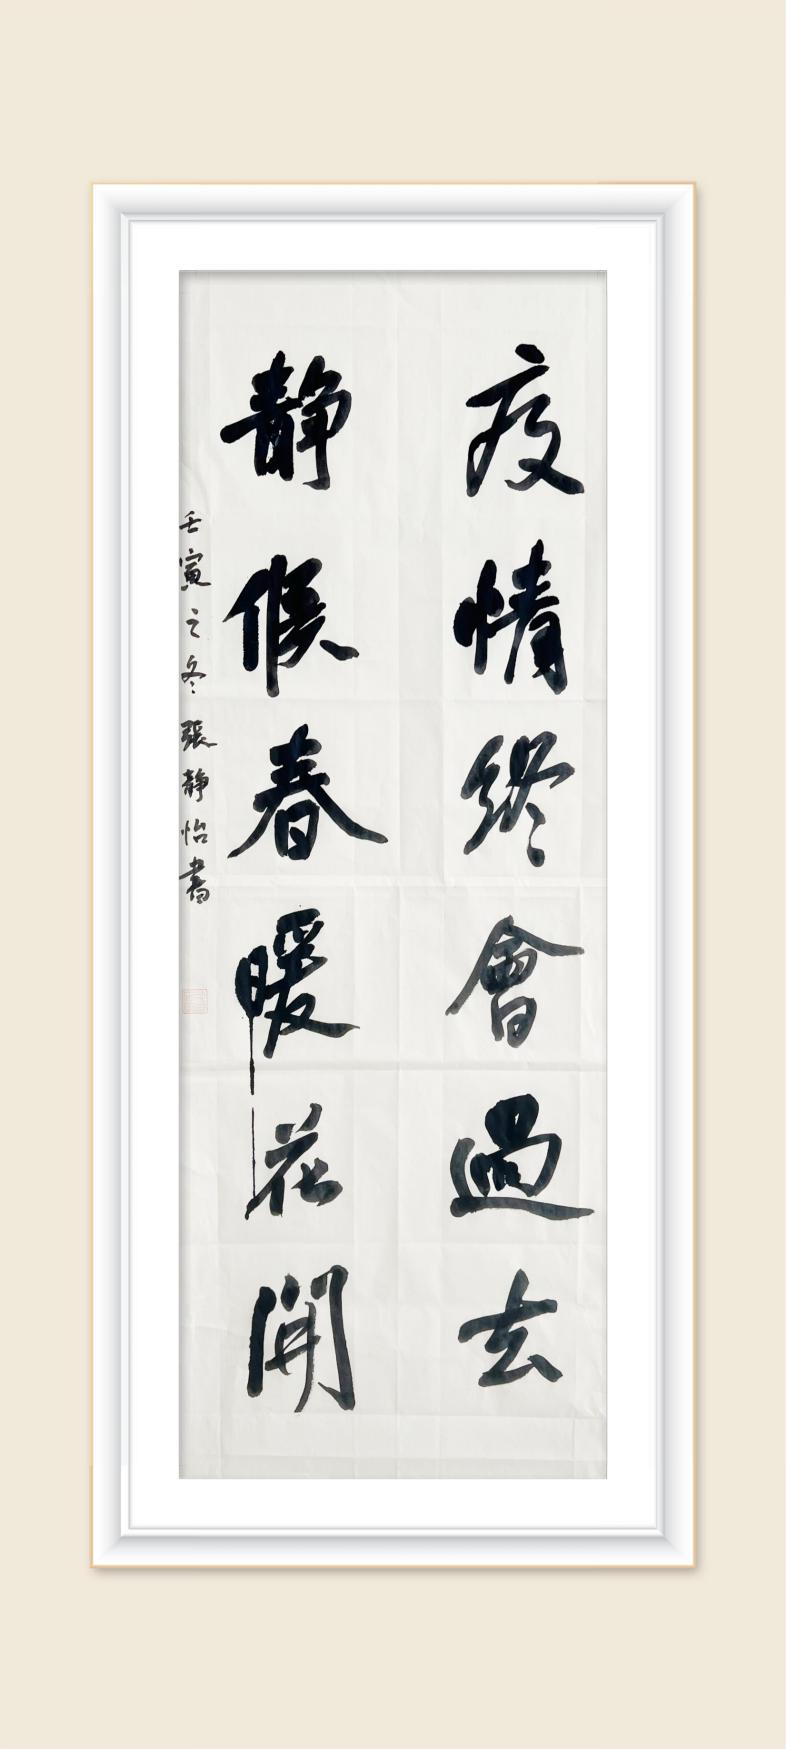 疫情終會過去
静候春暖花開
壬寅之冬張静怡書